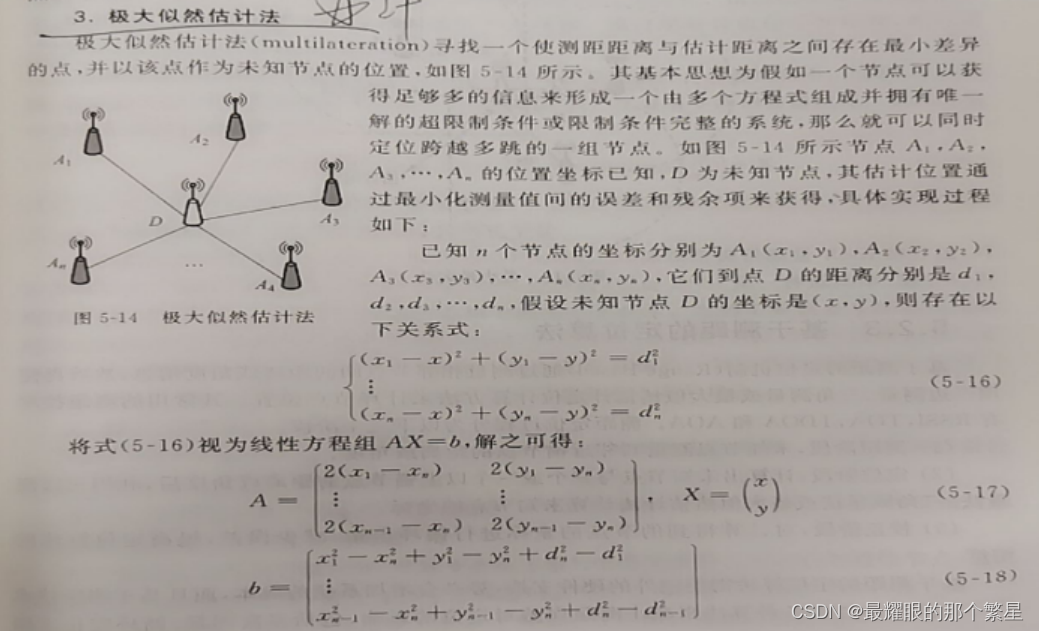 3. 极大似然估计法
极大似然估计法(multilateration)寻找一个使测距距离与估计距离之间存在最小差异
的点,并以该点作为未知节点的位置,如图 5-14 所示。其基本思想为假如一个节点可以获
得足够多的信息来形成一个由多个方程式组成并拥有唯一
解的超限制条件或限制条件完整的系统,那么就可以同时
定位跨越多跳的一组节点。如图 5-14 所示节点 A₁,A₂,
A₃,…,Aₙ 的位置坐标已知,D 为未知节点,其估计位置通
过最小化测量值间的误差和残余项来获得,具体实现过程
如下:
A₁
A₂
A₃
D
Aₙ
…
A₄
图 5-14 极大似然估计法
已知 n 个节点的坐标分别为 A₁(x₁,y₁),A₂(x₂,y₂),
A₃(x₃,y₃),…,Aₙ(xₙ,yₙ),它们到点 D 的距离分别是 d₁,
d₂,d₃,…,dₙ,假设未知节点 D 的坐标是(x,y),则存在以
下关系式:
(x₁−x)²+(y₁−y)²=d₁²
⋮
(xₙ−x)²+(yₙ−y)²=dₙ²
(5-16)
将式(5-16)视为线性方程组 AX=b,解之可得:
A = [2(x₁−xₙ) 2(y₁−yₙ)
⋮ ⋮
2(xₙ₋₁−xₙ) 2(yₙ₋₁−yₙ)], X = (x y)
(5-17)
b = [x₁²−xₙ²+y₁²−yₙ²+dₙ²−d₁²
⋮
xₙ₋₁²−xₙ²+yₙ₋₁²−yₙ²+dₙ²−dₙ₋₁²]
(5-18)
CSDN @最耀眼的那个繁星